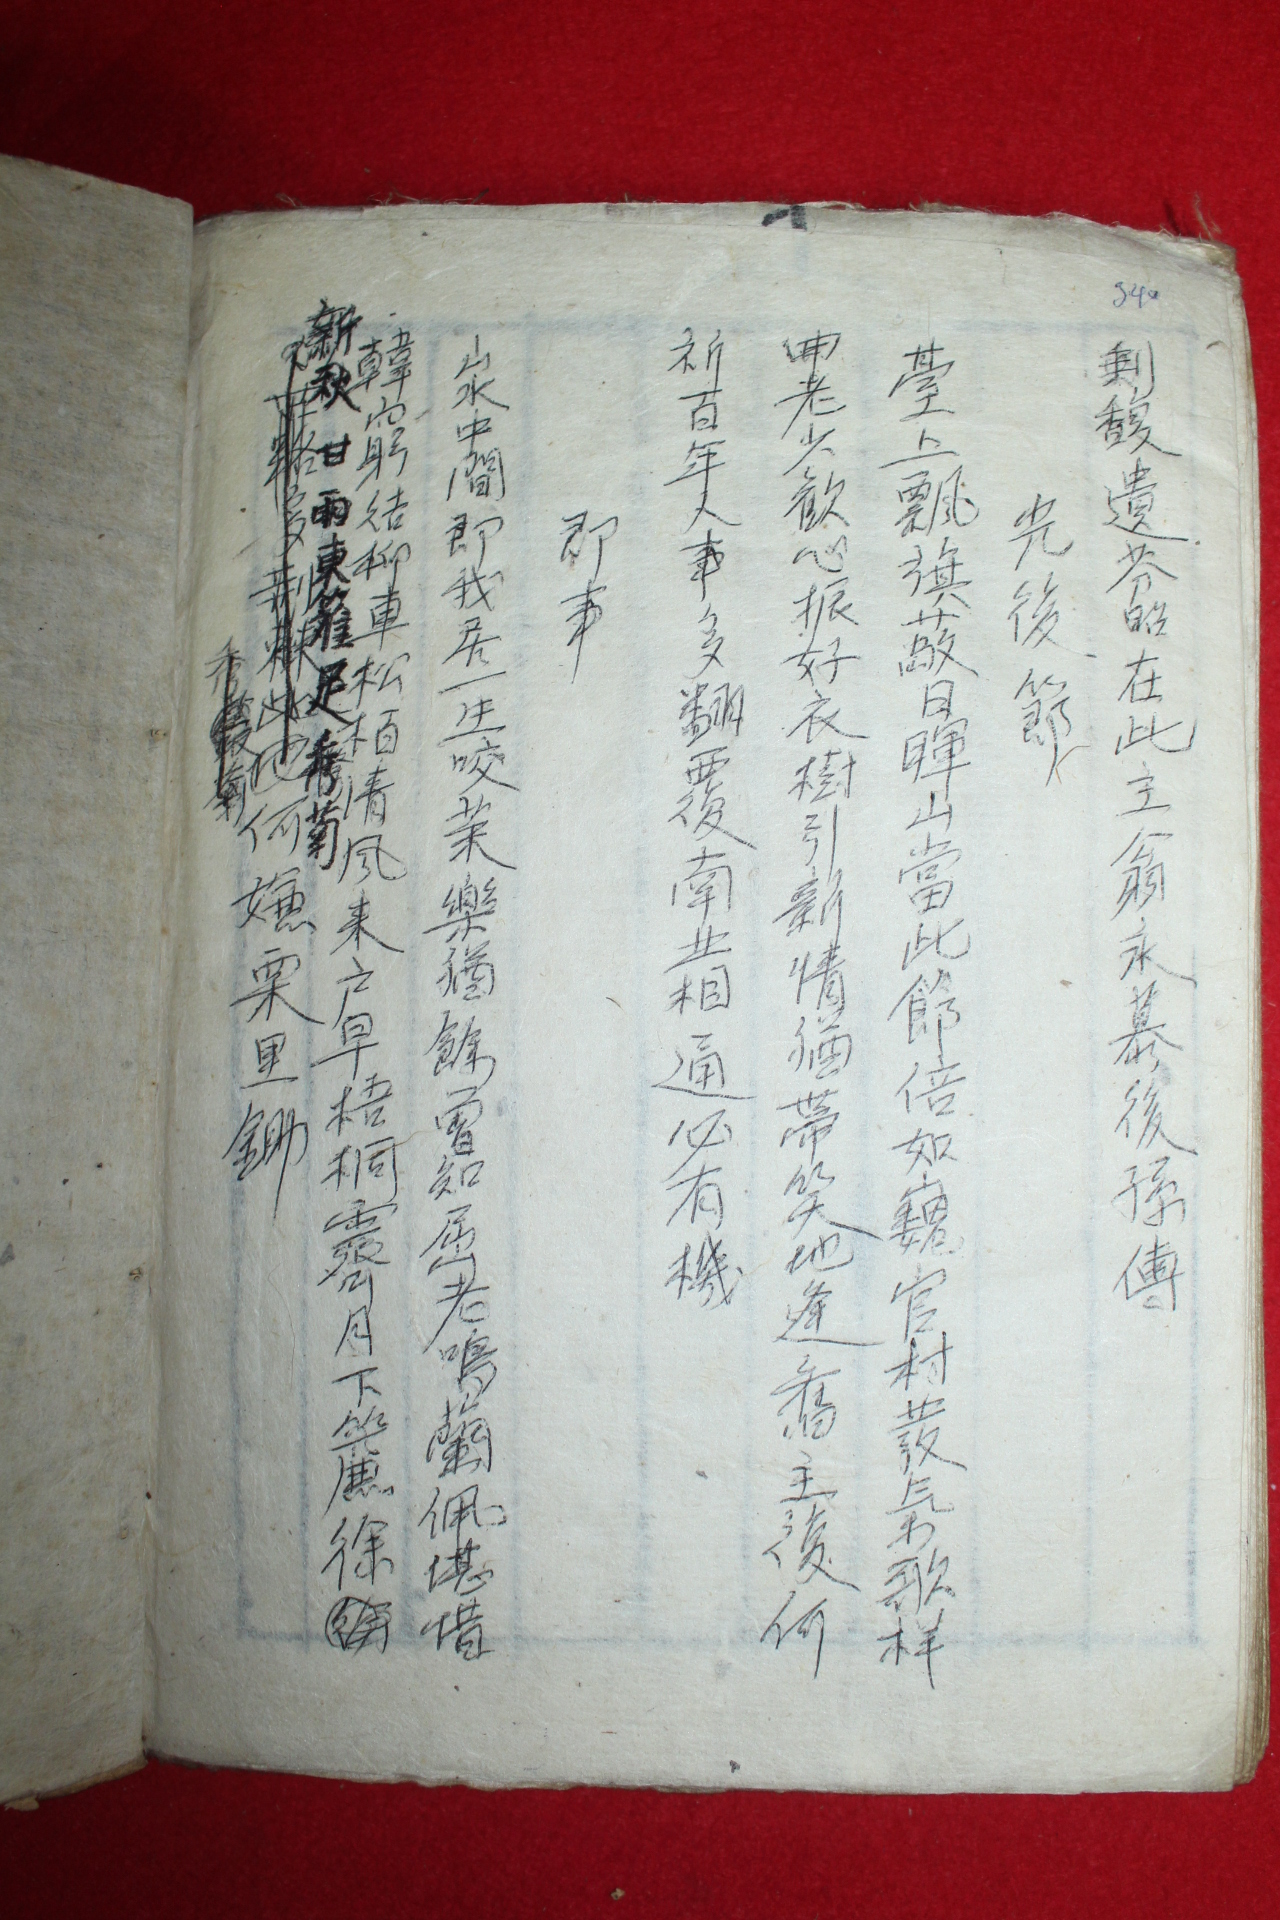 340
剩馥遺芬昭在此主翁永慕後孫傳
光後節
臺上飄旗蔽日暉山當此節倍如巍官村發氣歌样
冊老少歡心振好衣樹引新情猶帶笑地逢舊主復何
祈百年人事多翻覆南北相通必有機
即事
山水中間即我居一生咬菜樂猶餘曾知屈老鳴蘭佩堪惜
韓窮結柳車松栢清風来户早梧桐霽月下簾徐
新秋甘雨東籬足秀菊
此地何嫌栗里鋤